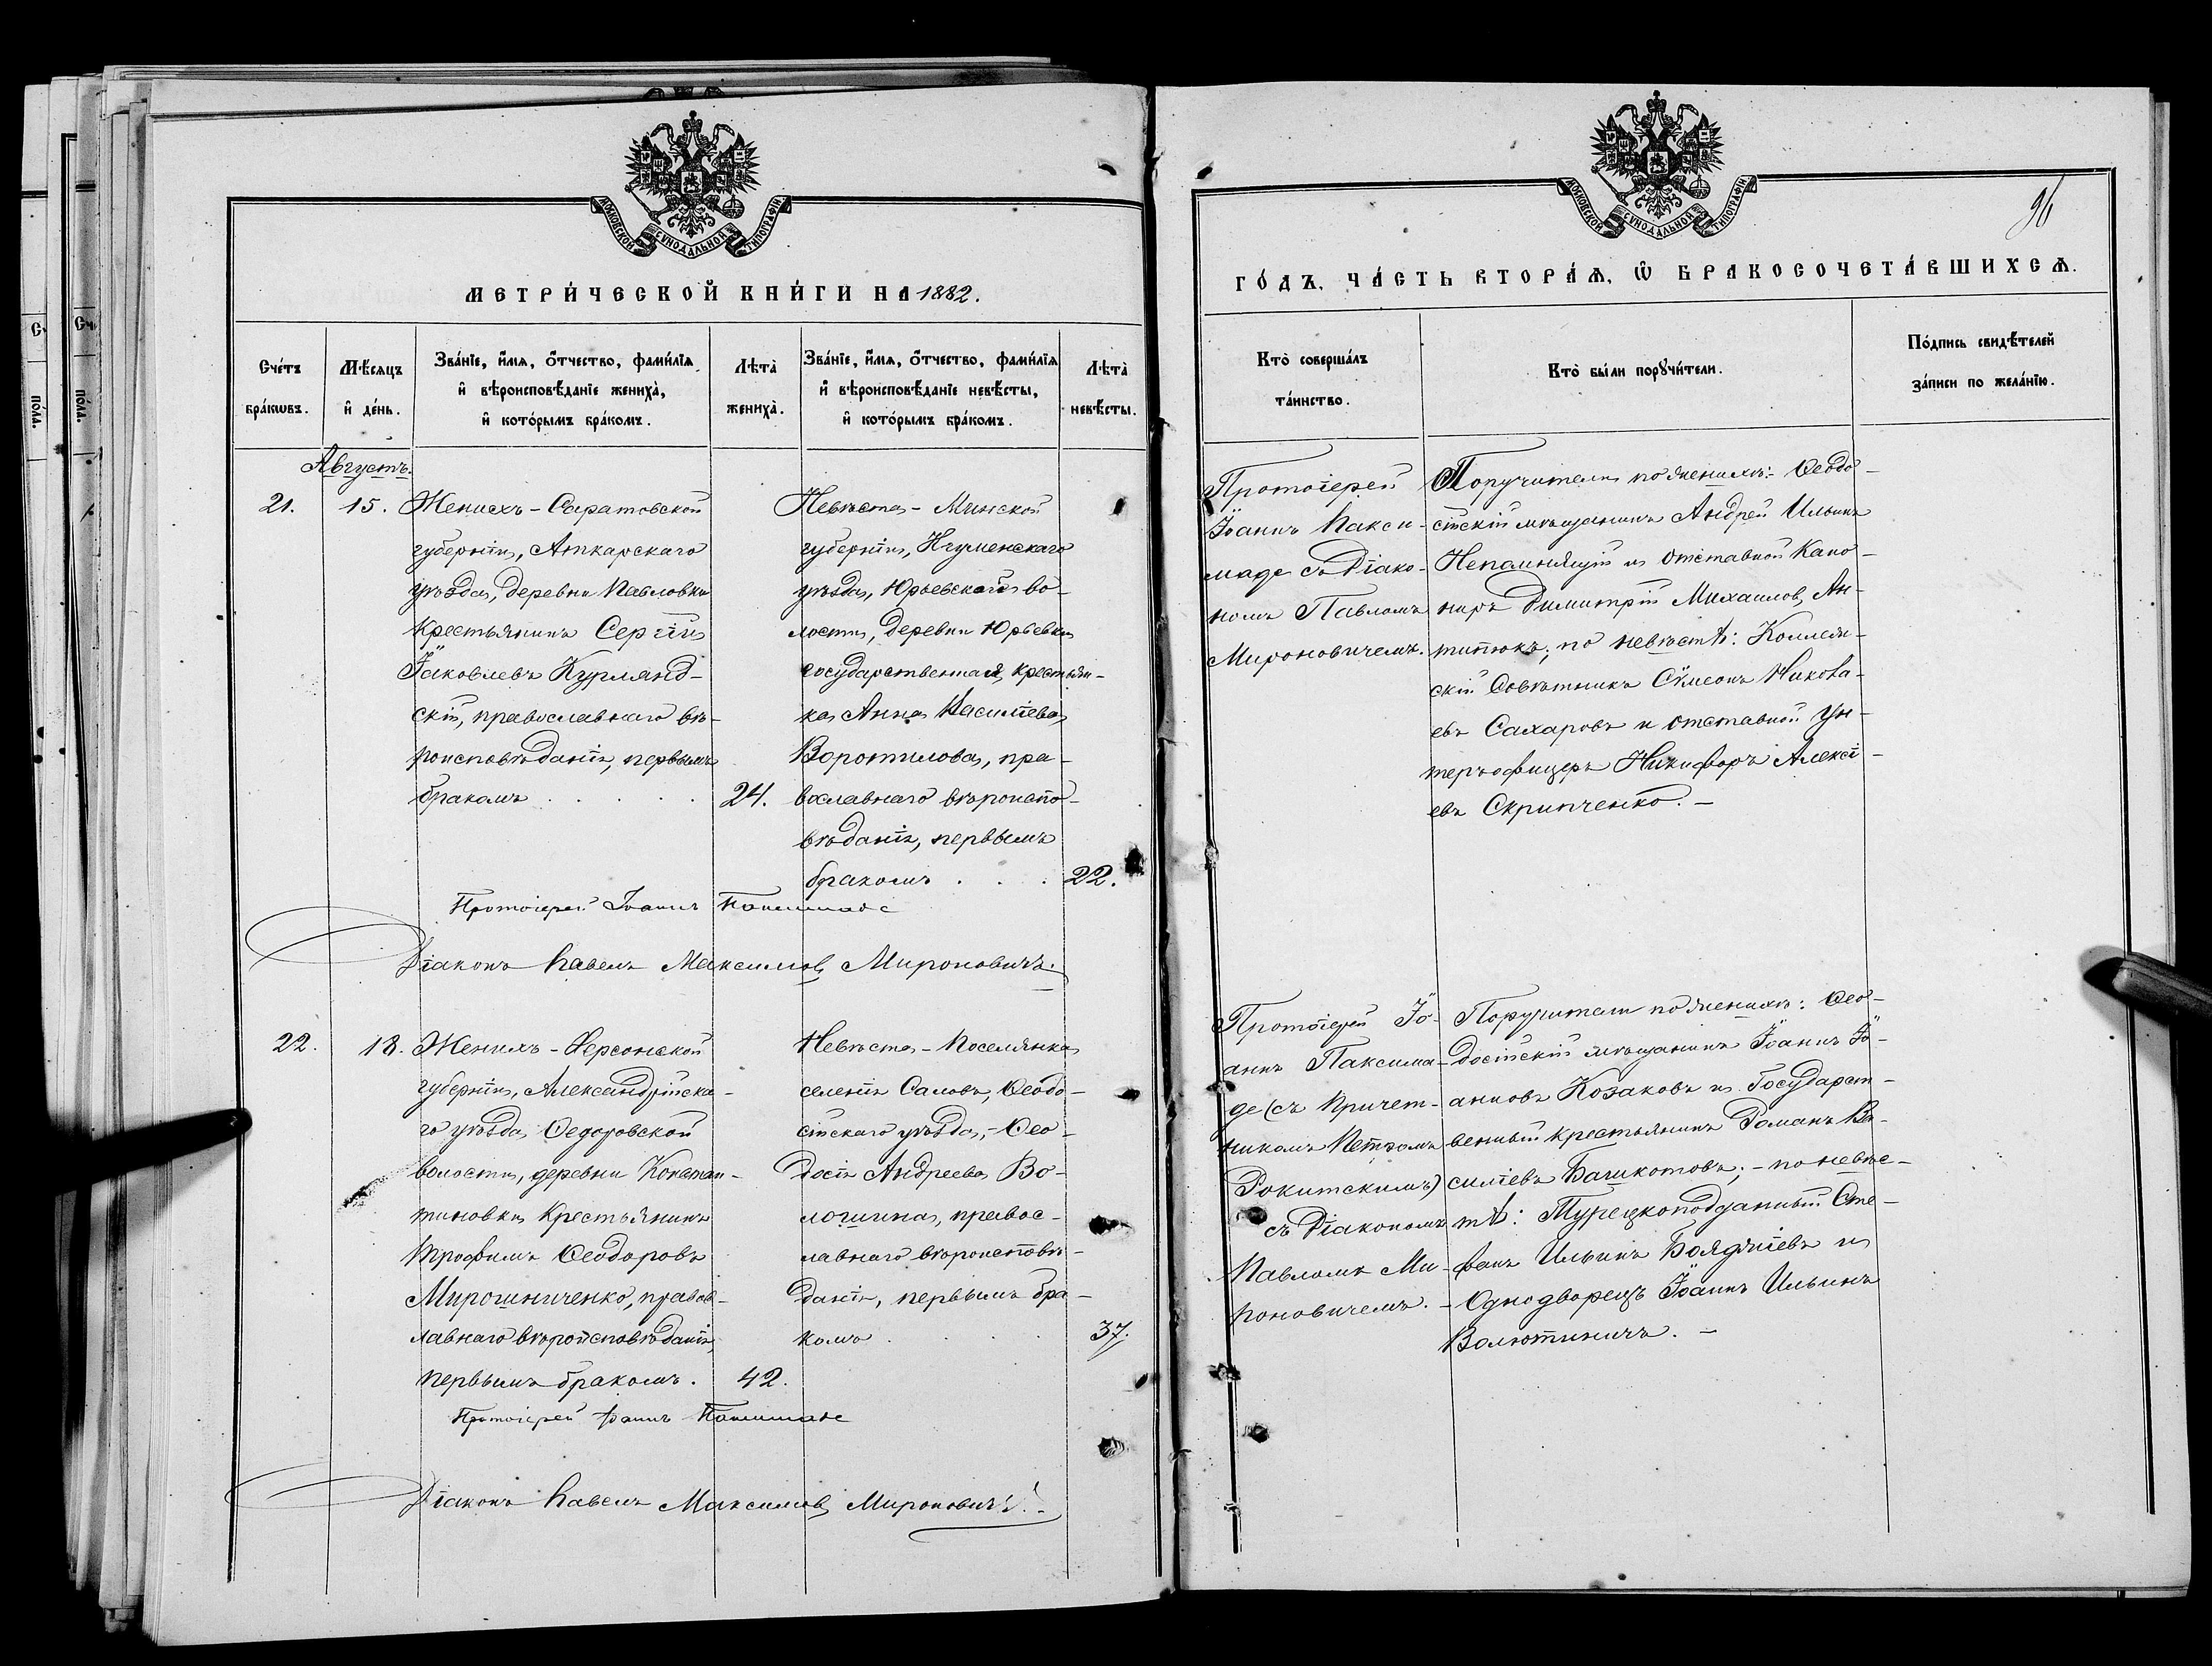 МОСКОВСКОЙ СѴНОДАЛЬНОЙ ТИПОГРАФІИ
МЕТРИ́ЧЕСКОЙ КНИ́ГИ НА 1882.
Сче́тъ бра́ковъ.
Мѣ́сяцъ и҆ де́нь.
Зва́нїе, и҆́мя, ѻ҆́тчество, фами́лїя и҆ вѣроисповѣ́данїе жениха̀, и҆ кото́рымъ бра́комъ.
Лѣта̀ жениха̀.
Зва́нїе, и҆́мя, ѻ҆́тчество, фами́лїя и҆ вѣроисповѣ́данїе невѣ́сты, и҆ кото́рымъ бра́комъ.
Лѣта̀ невѣ́сты.
Августъ.
21.
15.
Женихъ - Саратовской
губерніи, Аткарскаго
уѣзда, деревни Павловки
крестьянинъ Сергій
Іаковлевъ Курлянд-
скій, православнаго вѣ-
роисповѣданія, первымъ
бракомъ . . . . .
24.
Невѣста - Минской
губерніи, Игуменскаго
уѣзда, Юрьевской во-
лости, деревни Юрьевки
государственная крестьян-
ка Анна Василіева
Воротилова, пра-
вославнаго вѣроиспо-
вѣданія, первымъ
бракомъ . . .
22.
Протоіерей Іоаннъ Паксимаде
Діаконъ Павелъ Максимовъ Мироновичъ.
22.
18.
Женихъ - Херсонской
губерніи, Александрійска-
го уѣзда Ѳедоровской
волости, деревни Констан-
тиновки крестьянинъ
Трофимъ Ѳеодоровъ
Мирошниченко, правос-
лавнаго вѣроисповѣданія,
первымъ бракомъ.
42.
Невѣста - поселянка
селенія Саловъ, Ѳеодо-
сійскаго уѣзда, - Ѳео-
досія Андреева Во-
лошина, правос-
лавнаго вѣроисповѣ-
данія, первымъ бра-
комъ . . . .
37.
Протоіерей Іоаннъ Паксимаде
Діаконъ Павелъ Максимовъ Мироновичъ.
МОСКОВСКОЙ СѴНОДАЛЬНОЙ ТИПОГРАФІИ
96
ГО́ДЪ, ЧА́СТЬ ВТОРА́Ѧ, Ѿ БРАКОСОЧЕТА́ВШИХСѦ.
Кто̀ соверша́лъ та́инство.
Кто̀ бы́ли порꙋчи́тели.
По́дпись свидѣ́телей за́писи по жела́нїю.
Протоіерей
Іоаннъ Пакси-
маде съ Діако-
номъ Павломъ
Мироновичемъ.
Поручители по женихѣ: Ѳеодо-
сійскій мѣщанинъ Андрей Ильинъ
Непомнящій и отставной Кано-
ниръ Димитрій Михаиловъ Ан-
типюкъ; по невѣстѣ: Коллеж-
скій Совѣтникъ Сѵмеонъ Никола-
евъ Сахаровъ и отставной Ун-
теръофицеръ Никифоръ Алексі-
евъ Скрипченко. -
Протоіерей Іо-
аннъ Паксима-
де (съ Причет-
никомъ Петромъ
Рокитскимъ)
съ Діакономъ
Павломъ Ми-
роновичемъ. -
Поручители по женихѣ: Ѳео-
досійскій мѣщанинъ Іоаннъ Іо-
анновъ Козаковъ и Государст-
венный крестьянинъ Романъ Ва-
силіевъ Башкотовъ; - по невѣс-
тѣ: Турецкоподданный Сте-
фанъ Ильинъ Бояджіевъ и
Однодворецъ Іоаннъ Ильинъ
Волютиничъ. -